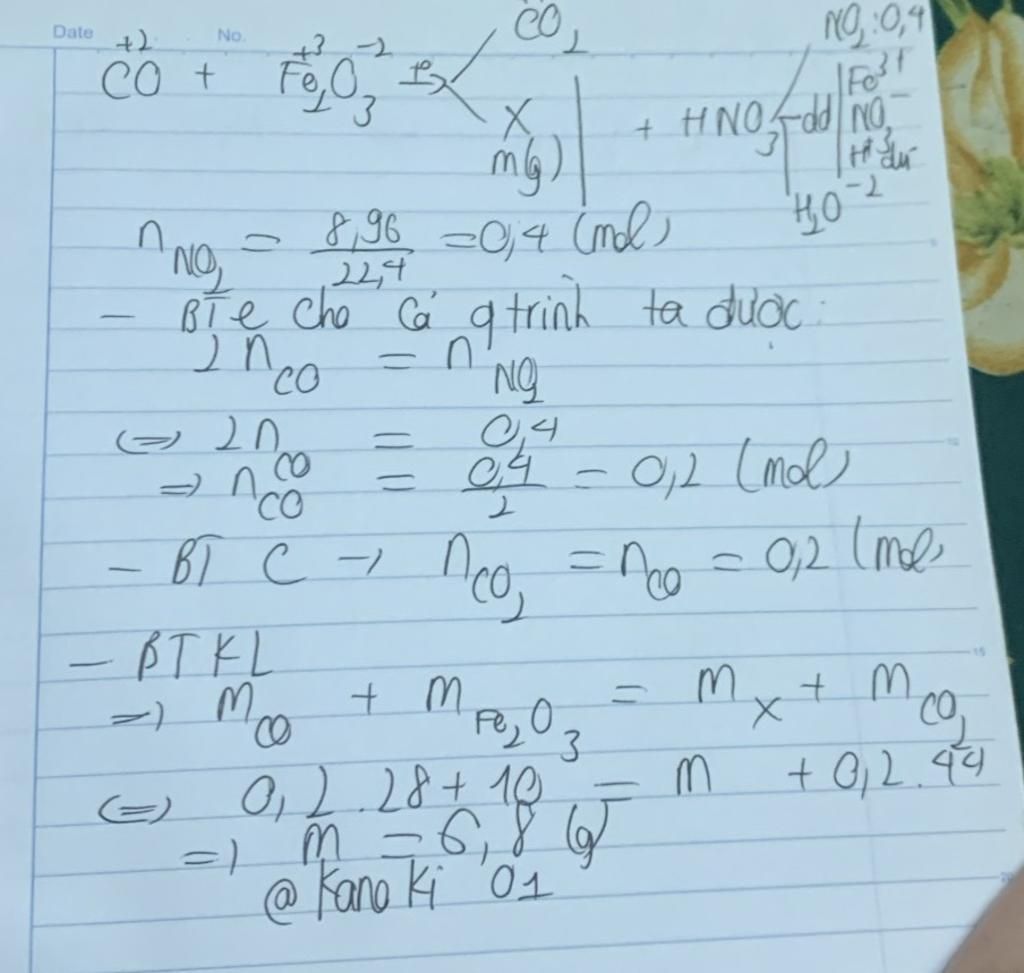 Date No.
+2 +3 -2
CO + Fe2O3 t° CO2
X
m(g)
+ HNO3
NO2: 0,4
dd Fe3+
NO3-
H+ dư
H2O -2
nNO2 = 8,96/22,4 = 0,4 (mol)
- BTe cho cả qtrình ta được:
2nCO = nNO2
<=> 2nCO = 0,4
=> nCO = 0,4/2 = 0,2 (mol)
- BT C → nCO2 = nCO = 0,2 (mol)
- BTKL
=> mCO + mFe2O3 = mX + mCO2
<=> 0,2.28 + 10 = m + 0,2.44
=> m = 6,8 (g)
@KanoKi 01